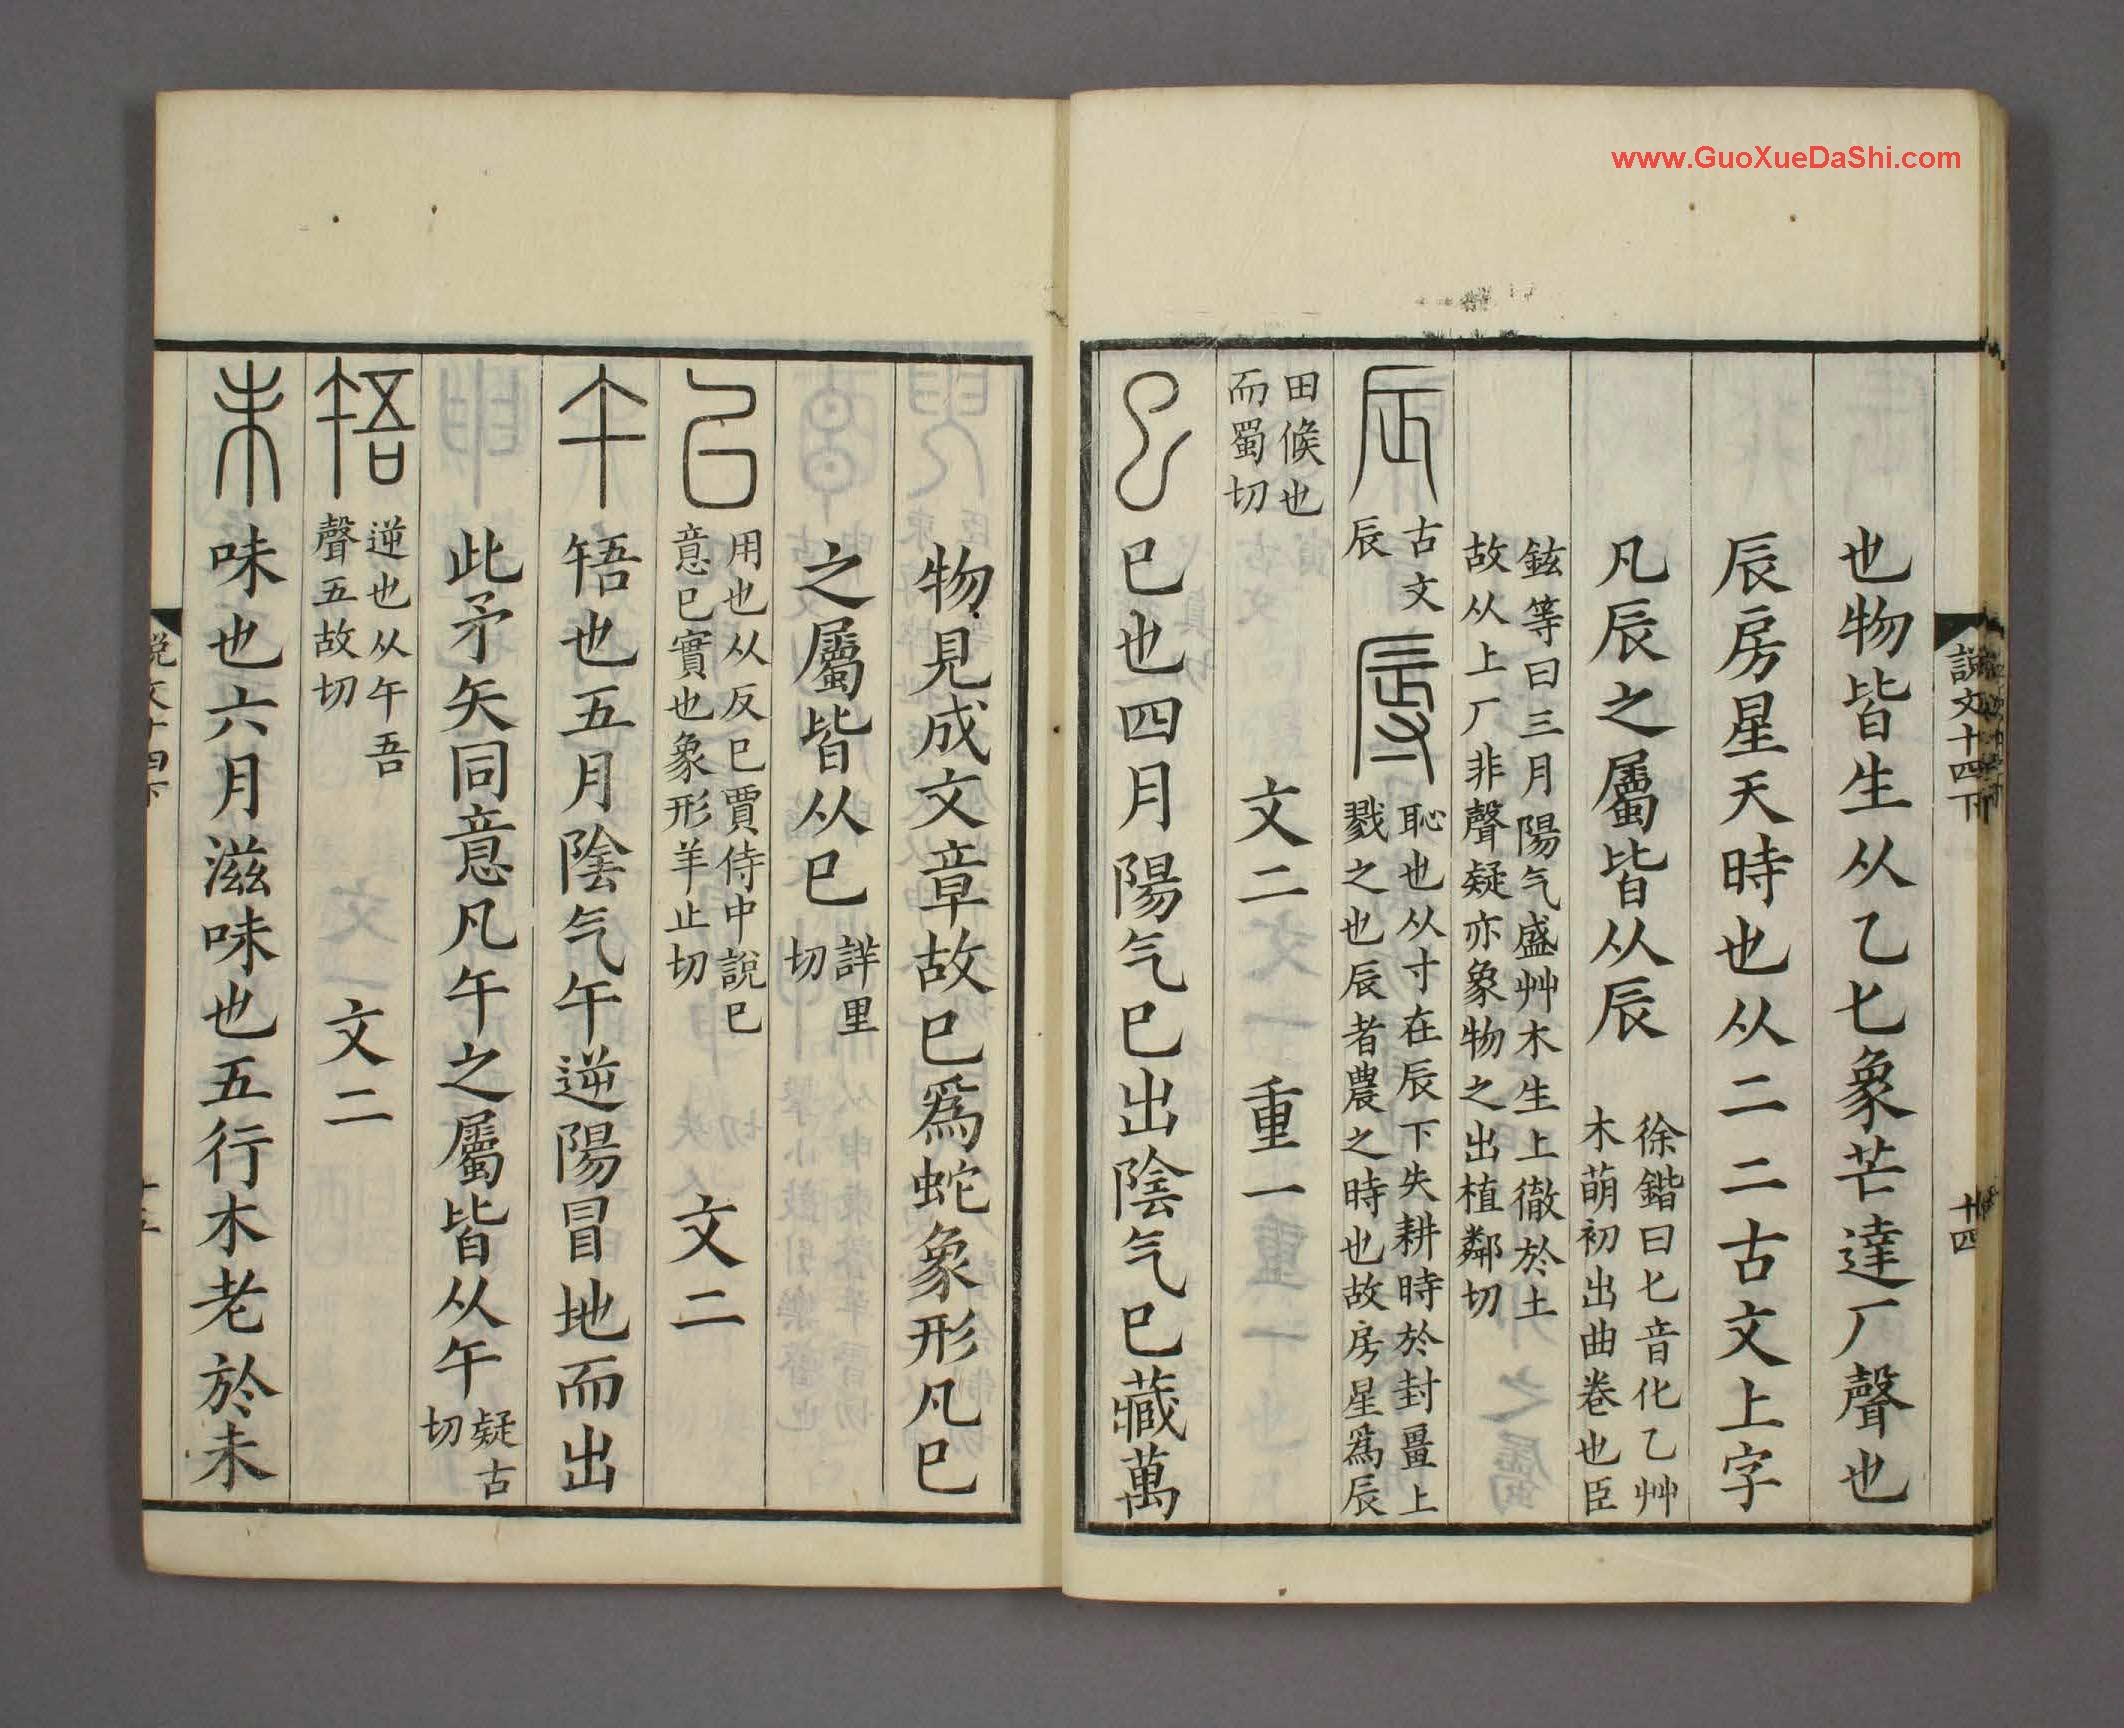 www.GuoXueDaShi.com
説文十四下 十四
也物皆生从乙匕象芒達厂聲也
辰房星天時也从二二古文上字
凡辰之屬皆从辰 徐鍇曰匕音化乙艸
木萌初出曲卷也臣
鉉等曰三月陽气盛艸木生上徹於土
故从上厂非聲疑亦象物之出植鄰切
辰 古文
辰
辱 恥也从寸在辰下失耕時於封畺上
戮之也辰者農之時也故房星爲辰
田候也
而蜀切 文二 重一
巳 巳也四月陽气巳出陰气巳藏萬
物見成文章故巳爲蛇象形凡巳
之屬皆从巳 詳里
切
㠯 用也从反巳賈侍中說巳
意巳實也象形羊止切 文二
午 啎也五月陰气午逆陽冒地而出
此矛矢同意凡午之屬皆从午 疑古
切
啎 逆也从午吾
聲五故切 文二
未 味也六月滋味也五行木老於未
説文十四下 十五